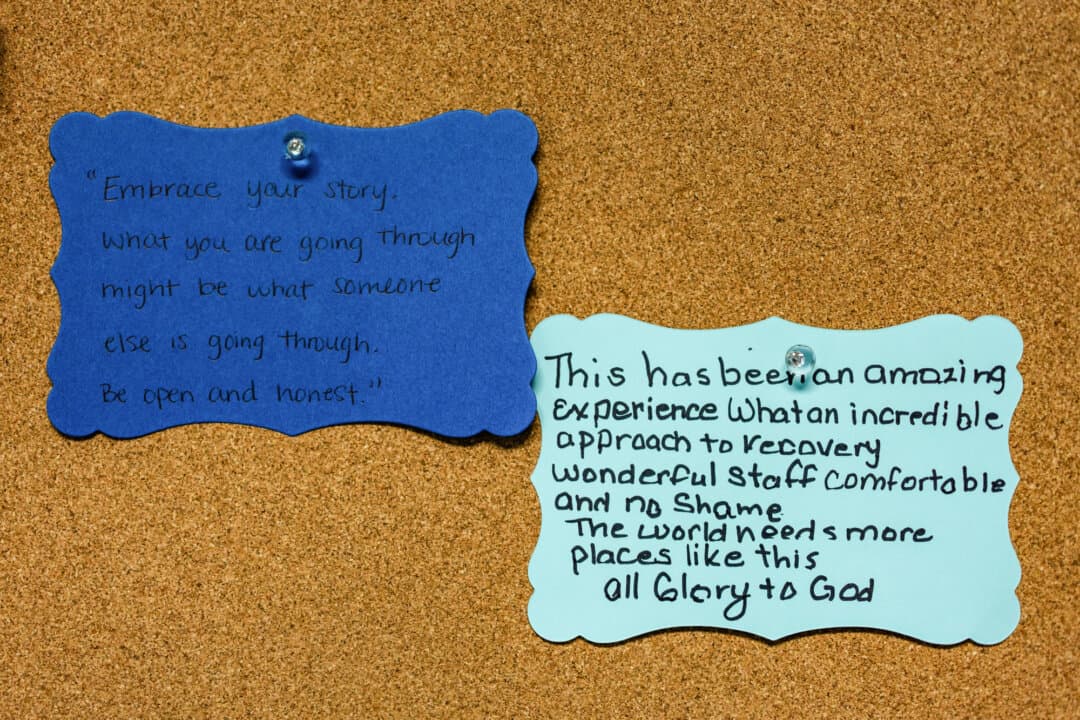 "Embrace your story.
What you are going through
might be what someone
else is going through.
Be open and honest."
This has been an amazing
experience What an incredible
approach to recovery
wonderful staff comfortable
and no Shame
The world needs more
places like this
all Glory to God